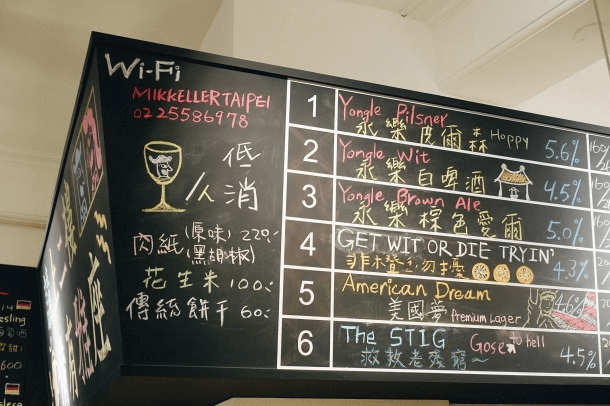 Wi-Fi
MIKKELLERTAIPEI
0225586978
低
/人 消
肉紙 (原味) 220.-
(黑胡椒)
花生米 100.-
傳統餅干 60.-
1 Yongle Pilsner
永樂皮爾森 Hoppy 5.6%
2 Yongle Wit
永樂白啤酒 4.5%
3 Yongle Brown Ale
永樂棕色愛爾 5.0%
4 GET WIT OR DIE TRYIN'
非求登之勿擾 4.3%
5 American Dream
美國夢 Premium Lager 4.6%
6 The STIG Gose to hell
救救老殘窮~ 4.5%
有雅座
esling
600